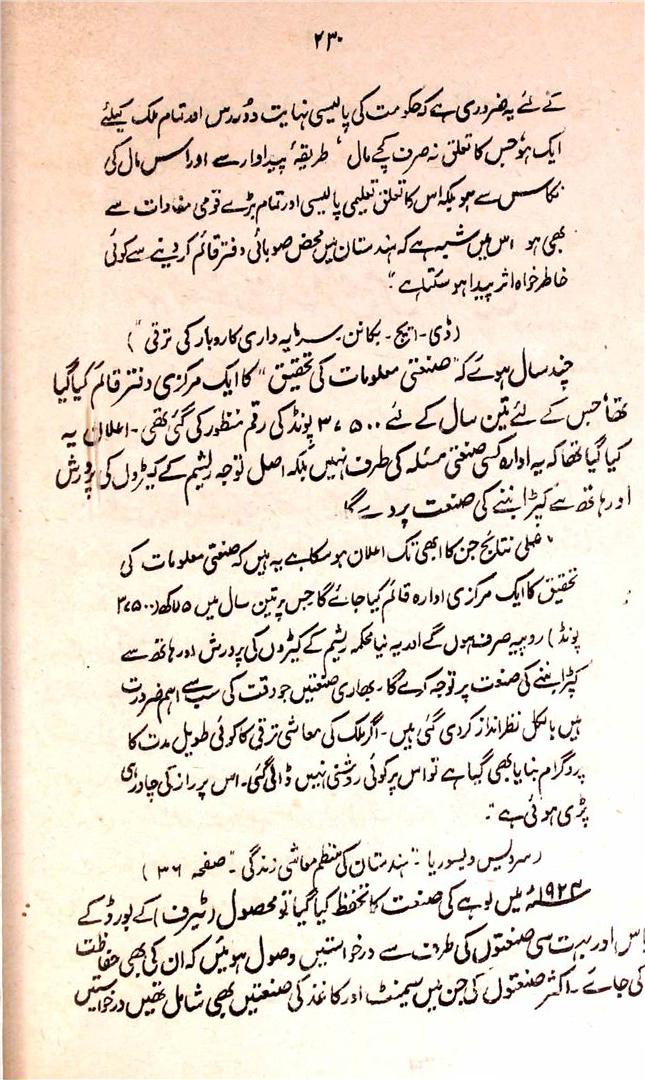 ۲۳۰
کے لئے یہ ضروری ہے کہ حکومت کی پالیسی نہایت دوررس اور تمام ملک کیلئے
ایک ہو، جس کا تعلق نہ صرف کچے مال، طریقۂ پیداوار سے اور اس مال کی
نکاسی سے ہو بلکہ اس کا تعلق تعلیمی پالیسی اور تمام بڑے قومی مفادات سے
بھی ہو اس میں شبہ ہے کہ ہندستان میں محض صوبائی دفتر قائم کر دینے سے کوئی
خاطر خواہ اثر پیدا ہو سکتا ہے"۔
(ڈی۔ ایچ۔ بکانن۔ سرمایہ داری کاروبار کی ترقی")
چند سال ہوئے کہ "صنعتی معلومات کی تحقیق" کا ایک مرکزی دفتر قائم کیا گیا
تھا، جس کے لئے تین سال کے لئے ۳۷۵۰۰ پونڈ کی رقم منظور کی گئی تھی۔ اعلان یہ
کیا گیا تھا کہ یہ ادارہ کسی صنعتی مسئلہ کی طرف نہیں بلکہ اصل توجہ ریشم کے کیڑوں کی پرورش
اور ہاتھ سے کپڑا بننے کی صنعت پر دے گا۔
"عملی نتائج جن کا ابھی تک اعلان ہو سکا ہے یہ ہیں کہ صنعتی معلومات کی
تحقیق کا ایک مرکزی ادارہ قائم کیا جائے گا جس پر تین سال میں ۵ لاکھ (۳۷۵۰۰
پونڈ) روپیہ صرف ہوں گے اور یہ نیا محکمہ ریشم کے کیڑوں کی پرورش اور ہاتھ سے
کپڑا بننے کی صنعت پر توجہ کرے گا۔ بھاری صنعتیں جو وقت کی سب سے اہم ضرورت
ہیں بالکل نظر انداز کر دی گئی ہیں۔ اگر ملک کی معاشی ترقی کا کوئی طویل مدت کا
پروگرام بنایا بھی گیا ہے تو اس پر کوئی روشنی نہیں ڈالی گئی۔ اس پر راز کی چادر ہی
پڑی ہوئی ہے"۔
(سر ویسویسوریا: "ہندستان کی منظم معاشی زندگی"۔ صفحہ ۳۶)
۱۹۲۴ء میں لوہے کی صنعت کا تحفظ کیا گیا تو محصول (ٹیرف) کے بورڈ کے
پاس اور بہت سی صنعتوں کی طرف سے درخواستیں وصول ہوئیں کہ ان کی بھی حفاظت
کی جائے۔ اکثر صنعتوں کی جن میں سیمنٹ اور کاغذ کی صنعتیں بھی شامل تھیں درخواستیں